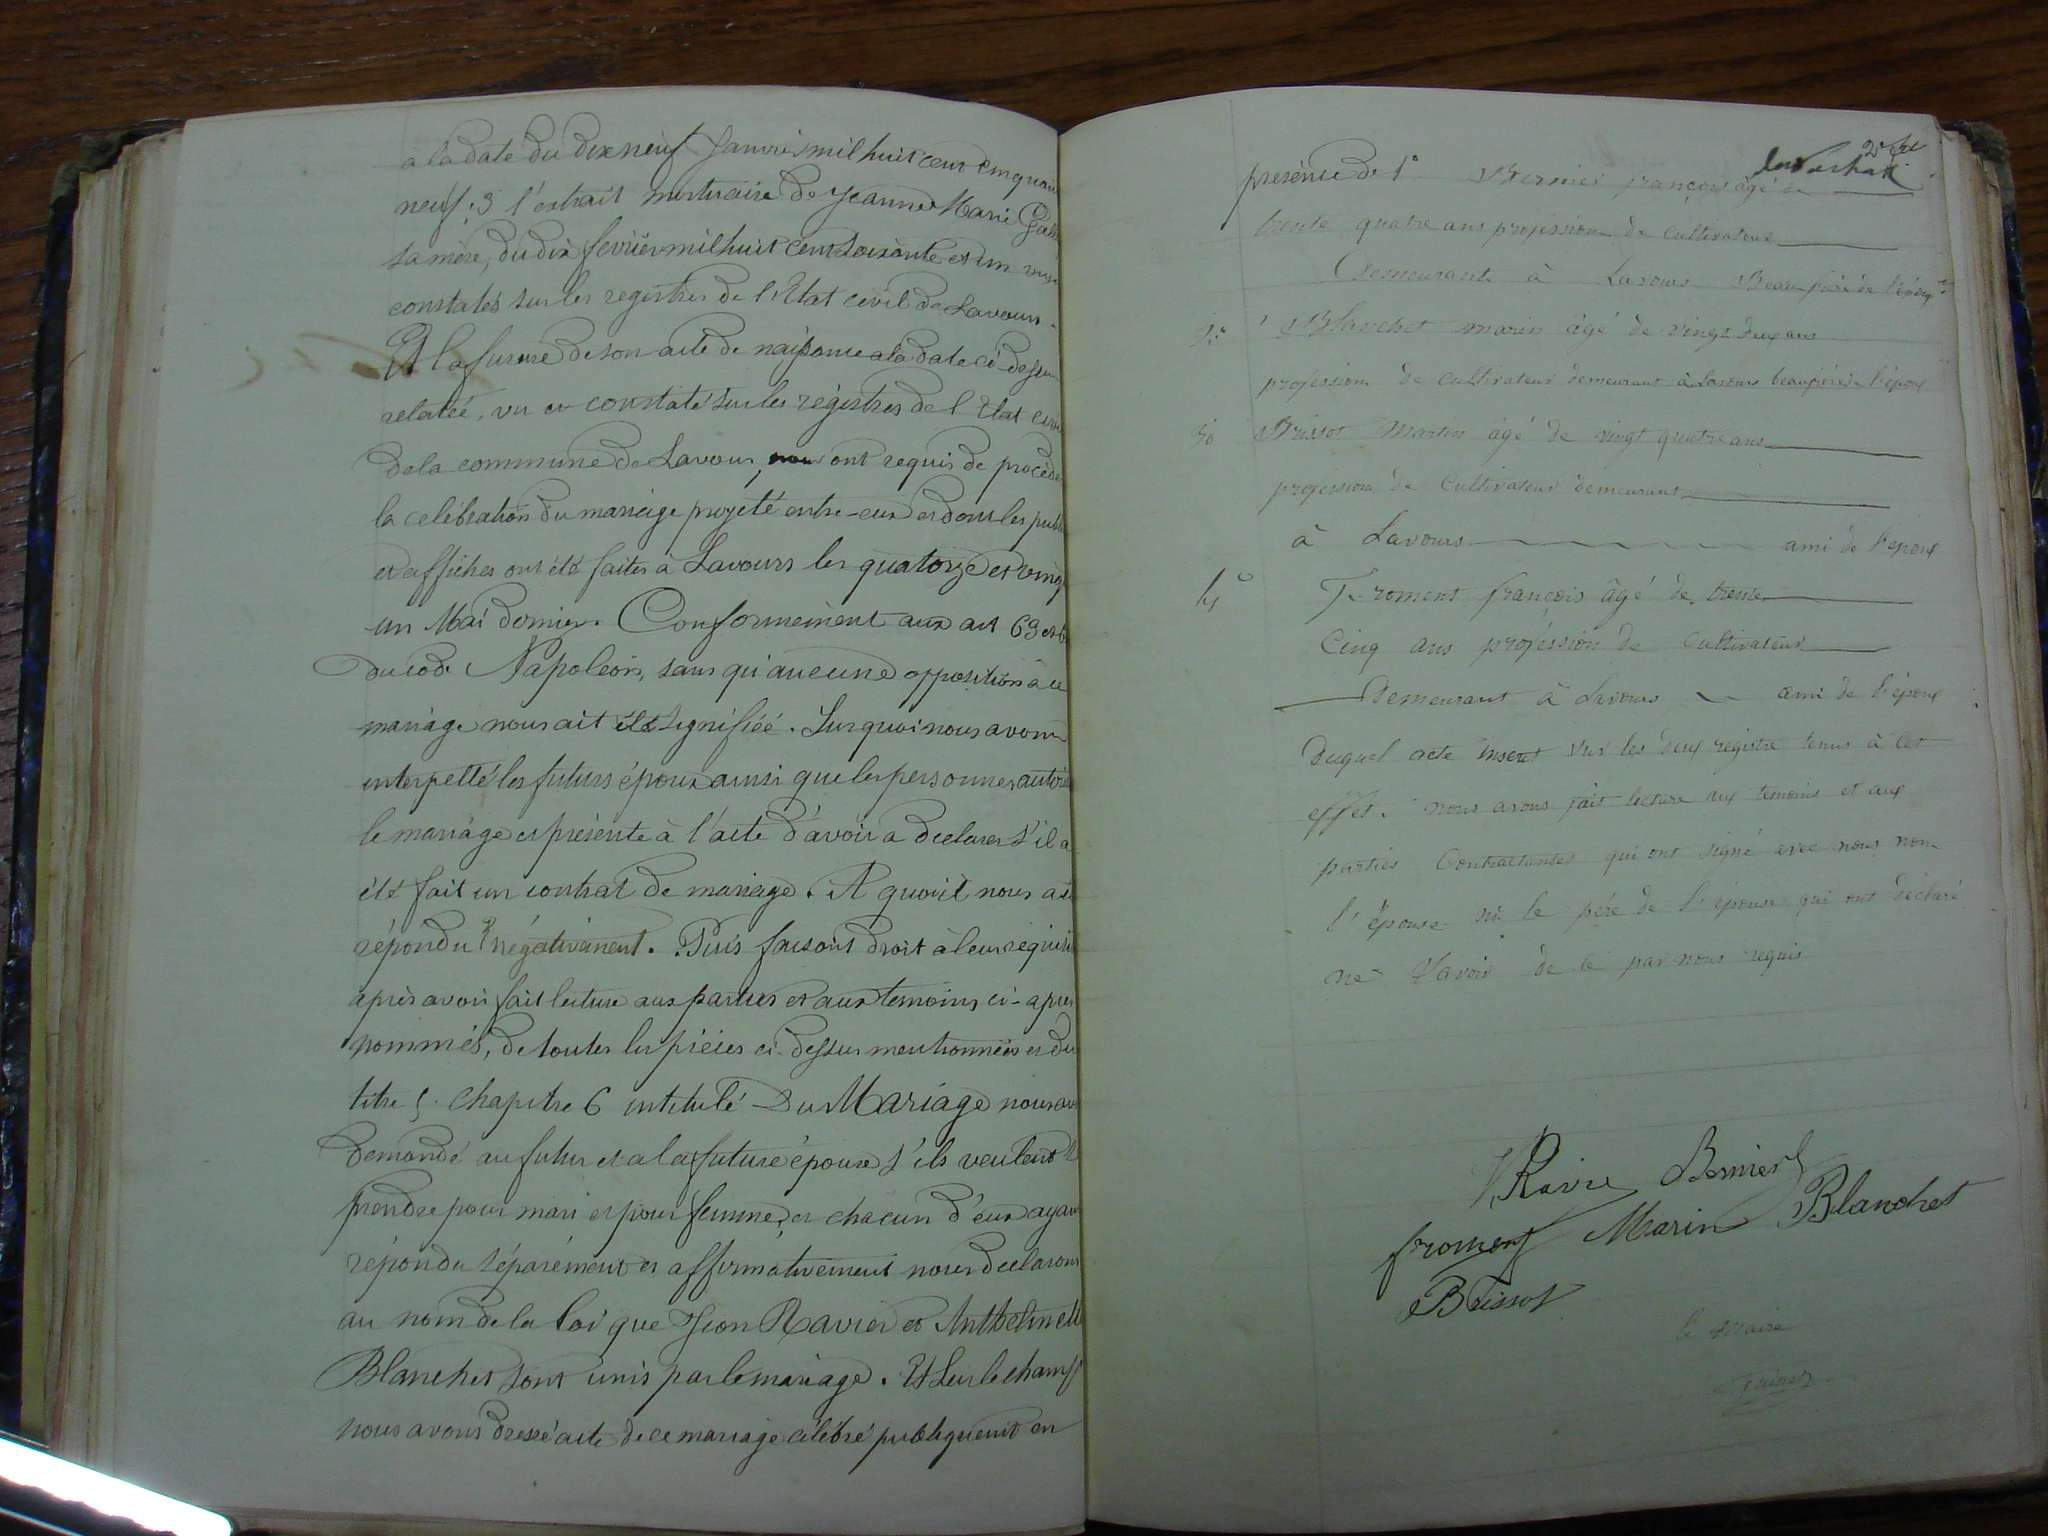 à la date du dix neuf Janvier mil huit cent cinquante
neuf; 3 l'extrait mortuaire de Jeanne Marie
sa mère, du dix fevrier mil huit cent soixante et un vus et
constatés sur les registres de l'Etat civil de Lavours.
Et la future de son acte de naissance a la date ci dessus
relatée, vu et constaté sur les régistres de l'Etat civil
de la commune de Lavours, nous ont requis de procéder
la celébration du mariage projeté entre-eux et dont les publi
et affiches ont été faites à Lavours les quatorze et vingt
un Mai dernier. Conformément aux art 63 et 6
du code Napoléon, sans qu'aucune opposition à ce
mariage nous ait été signifiée. Sur quoi nous avons
interpellé les futurs époux ainsi que les personnes autoris
le mariage et présente à l'acte d'avoir a declarer s'il a
été fait un contrat de mariage. A quoi il nous a été
répondu négativement. Puis faisant droit à leur réquisi
après avoir fait lecture aux parties et aux temoins ci-après
nommés, de toutes les pièces ci-dessus mentionnées et du
titre 5. Chapitre 6 intitulé Du Mariage nous av
demandé au futur et a la future épouse s'ils veulent se
prendre pour mari et pour femme, et chacun d'eux ayant
répondu séparément et affirmativement nous declarons
au nom de la loi que Jean Ravier et Anthelmette
Blanchet sont unis par le mariage. Et sur le champ
nous avons dressé acte de ce mariage célébré publiquement en
présence de 1° Bernier françois âgé de
trente quatre ans profession de cultivateur
Demeurant à Lavours Beau frère de l'époux
2° Blanchet marin âgé de vingt deux ans
profession de cultivateur demeurant à Lavours beau frère de l'époux
3° Brissot Martin âgé de vingt quatre ans
profession de Cultivateur demeurant
à Lavours ami de l'époux
4° Froment françois âgé de trente
Cinq ans proféssion de Cultivateur
Demeurant à Lavours ami de l'époux
Duquel acte inseret sur les deux registre tenus à cet
effet. nous avons fait lecture aux temoins et aux
parties Contractantes qui ont signé avec nous non
l'épouse ni le père de l'épouse qui ont déclaré
ne savoir de ce par nous requis
Ravie Bernier
froment Marin Blanchet
Brissot
le Maire